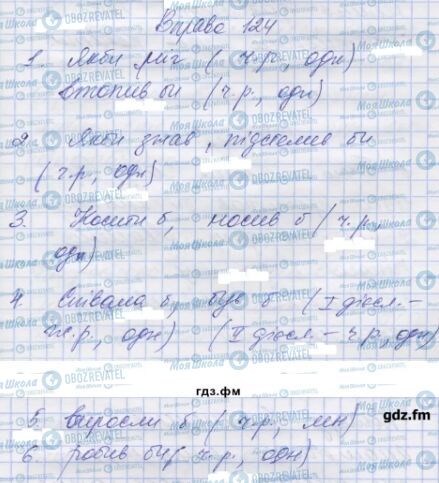 Вправа 124
1. Якби міг (ч.р., одн)
втопив би (ч.р., одн)
2. Якби знав, підстелив би
(ч.р., одн)
3. Косити б, носив б (ч.р.,
одн)
4. Співала б, був б (I дієсл. –
ж.р., одн) (II дієсл – ч.р., одн)
гдз.фм
5. виросли б (ч.р., мн)
gdz.fm
6. робив би (ч.р., одн)